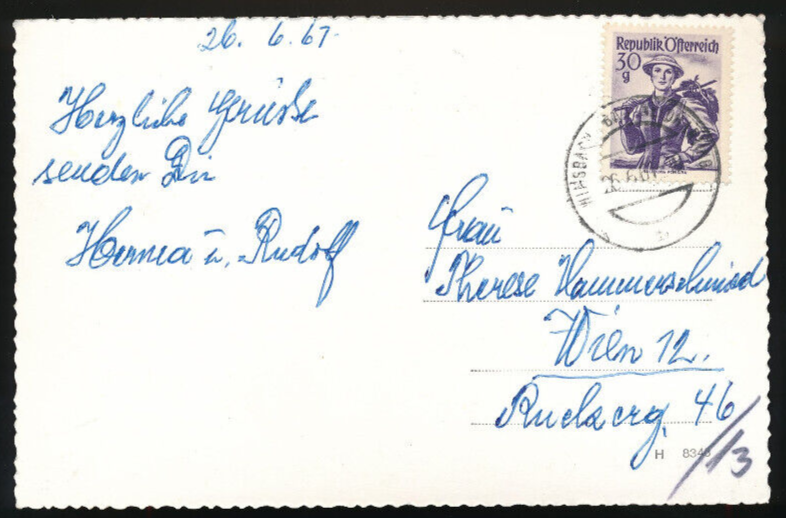 26. 6. 67.
Republik Österreich
30
g
Herzliche Grüße
senden Dir
Herma u. Rudolf
Frau
Therese Hammerschmied
Wien 12.
46
/13
H 834